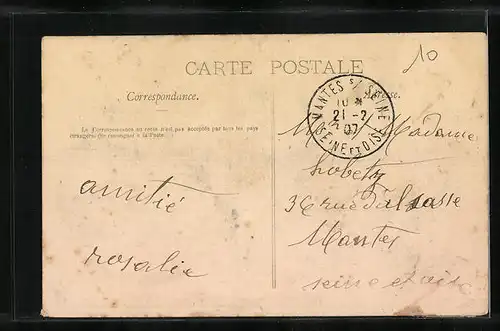 10
CARTE POSTALE
Correspondance.
Adresse.
La Correspondance au recto n'est pas acceptée par tous les pays
étrangers (Se renseigner à la Poste)
MANTES S/ SEINE
10 M
21-2
07
SEINE ET OISE
Madame
36 rue d'alsasse
Mantes
seine et oise
amitié
rosalie